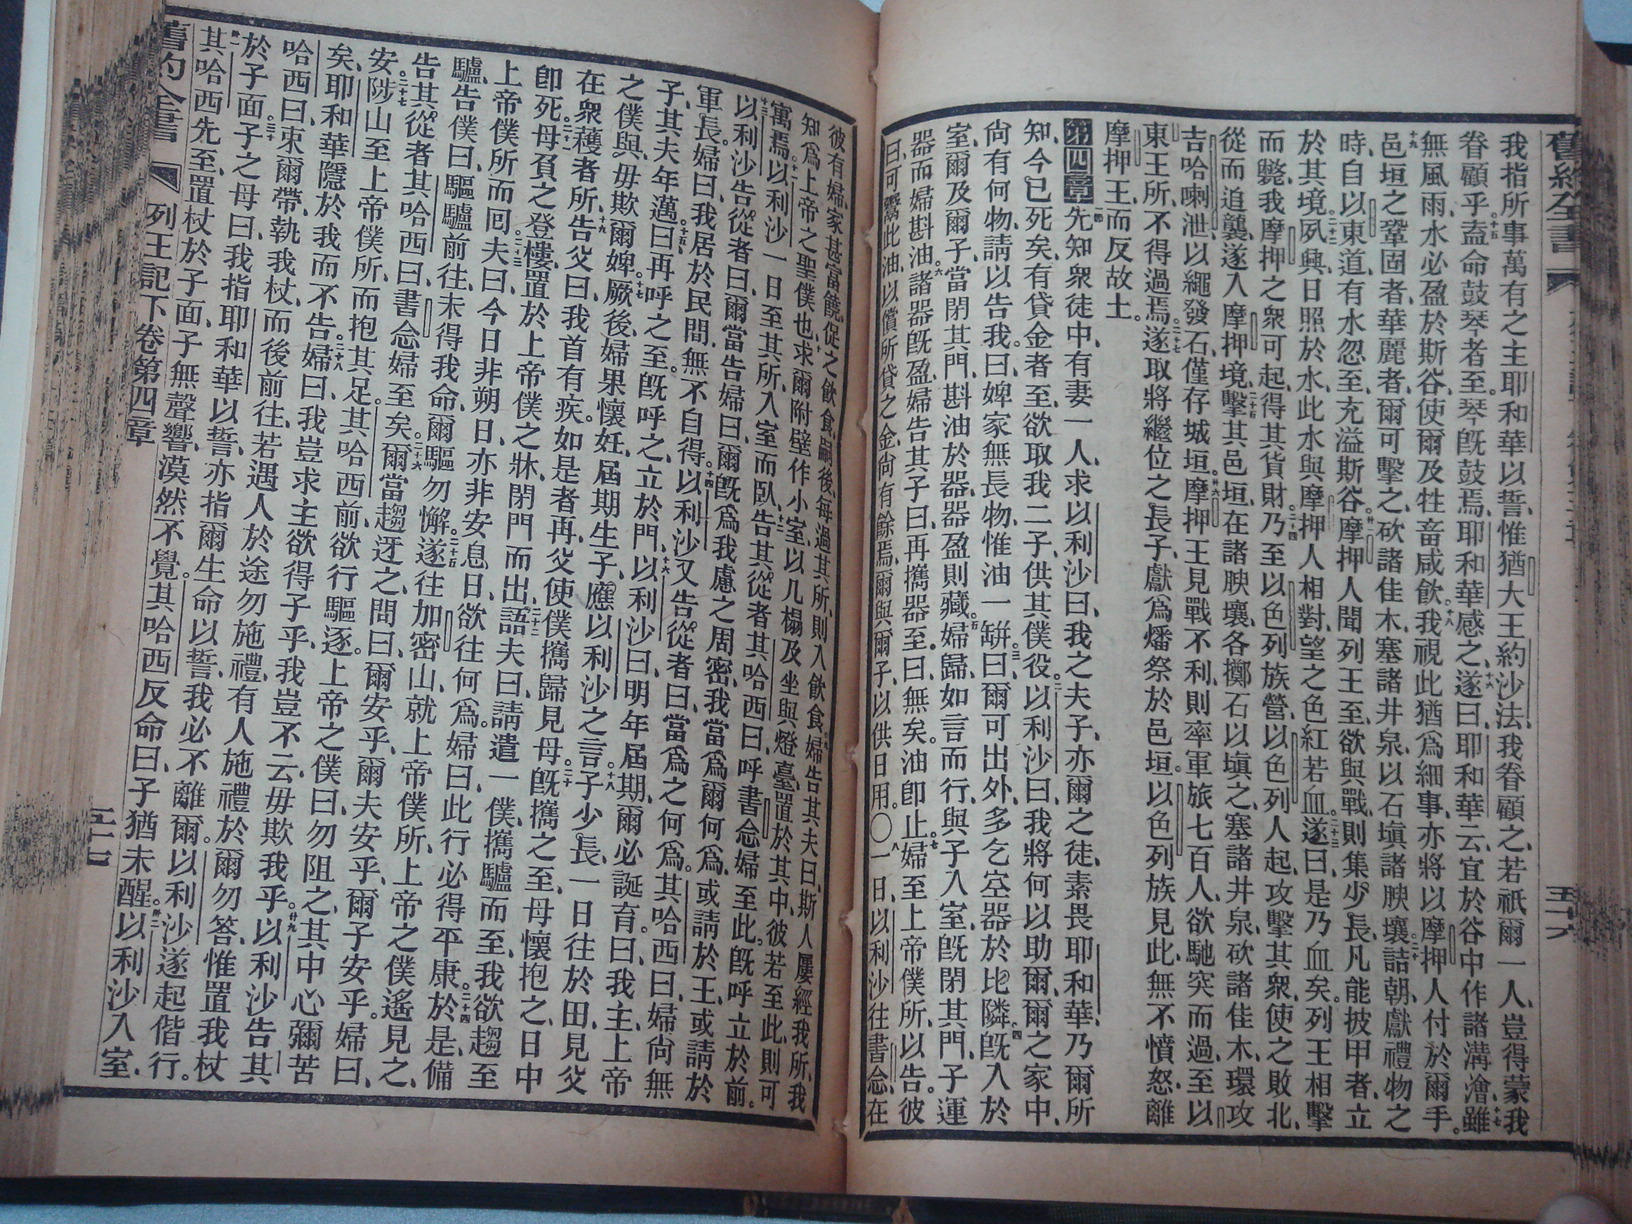 舊約全書
五十六
我指所事萬有之主耶和華以誓、惟猶大王約沙法、我眷顧之、若祇爾一人、豈得蒙我
眷顧乎、十五盍命鼓琴者至、琴旣鼓焉、耶和華感之、十六遂曰、耶和華云、宜於谷中作諸溝澮、十七雖
無風雨、水必盈於斯谷、使爾及牲畜咸飮、十八我視此猶爲細事、亦將以摩押人付於爾手。
十九邑垣之鞏固者、華麗者、爾可擊之、砍諸佳木、塞諸井泉、以石塡諸腴壤、二十詰朝、獻禮物之
時、自以東道有水忽至、充溢斯谷、廿一摩押人聞列王至、欲與戰、則集少長凡能披甲者、立
於其境、二十二夙興、日照於水、此水與摩押人相對、望之色紅若血、二十三遂曰、是乃血矣、列王相擊
而斃、我摩押之衆、可起得其貨財、二十四乃至以色列族營、以色列人起、攻擊其衆、使之敗北、
從而追襲、遂入摩押境、二十五擊其邑垣、在諸腴壤、各擲石以塡之、塞諸井泉、砍諸佳木、環攻
吉哈喇泄、以繩發石、僅存城垣、廿六摩押王見戰不利、則率軍旅七百人、欲馳突而過、至以
東王所、不得過焉、二十七遂取將繼位之長子、獻爲燔祭於邑垣。以色列族見此、無不憤怒、離
摩押王、而反故土。
第四章一先知衆徒中、有妻一人、求以利沙曰、我之夫子、亦爾之徒、素畏耶和華、乃爾所
知、今已死矣、有貸金者至、欲取我二子、供其僕役、二以利沙曰、我將何以助爾、爾之家中、
尚有何物、請以告我、曰、婢家無長物、惟油一缾、三曰、爾可出外、多乞空器於比隣、四旣入於
室、爾及爾子、當閉其門、斟油於器、器盈則藏、五婦歸、如言而行、與子入室、旣閉其門、子運
器而婦斟油、六諸器旣盈、婦告其子曰、再攜器至、曰、無矣。油卽止、七婦至上帝僕所、以告。彼
曰、可鬻此油、以償所貸之金、尚有餘焉、爾與爾子、以供日用。〇八一日、以利沙往書念、在
彼有婦、家甚富饒、促之飮食、嗣後每過其所、則入飮食、九婦告其夫曰、斯人屢經我所、我
知爲上帝之聖僕也、十求爾附壁作小室、以几榻及坐與燈臺、置於其中、彼若至此、則可
寓焉。十一以利沙一日至其所、入室而臥、十二告其從者其哈西曰、呼書念婦至此。旣呼、立於前。
十三以利沙告從者曰、爾當告婦曰、爾旣爲我慮之周密、我當爲爾何爲、或請於王、或請於
軍長。婦曰、我居於民間、無不自得。十四以利沙又告從者曰、當爲之何爲、其哈西曰、婦尚無
子、其夫年邁、十五曰、再呼之至。旣呼之、立於門、十六以利沙曰、明年屆期、爾必誕育、曰、我主上帝
之僕與、毋欺爾婢、十七厥後、婦果懷妊、屆期生子、應以利沙之言、十八子少長、一日往於田、見父
在衆穫者所、十九告父曰、我首有疾、如是者再、父使僕攜歸見母、二十母旣攜之至、母懷抱之、日中
卽死、二十一母負之登樓、置於上帝僕之牀、閉門而出、二十二語夫曰、請遣一僕、攜驢而至、我欲趨至
上帝僕所而囘、二十三夫曰、今日非朔日、亦非安息日、欲往何爲。婦曰、此行必得平康、二十四於是備
驢、告僕曰、驅驢前往、未得我命、爾驅勿懈。二十五遂往加密山、就上帝僕所、上帝之僕遙見之、
告其從者其哈西曰、書念婦至矣、二十六爾當趨迓之、問曰、爾安乎、爾夫安乎、爾子安乎。婦曰、
安、二十七陟山至上帝僕所、而抱其足。其哈西前欲行驅逐、上帝之僕曰、勿阻之、其中心彌苦
矣、耶和華隱於我而不告、二十八婦曰、我豈求主欲得子乎、我豈不云毋欺我乎、廿九以利沙告其
哈西曰、束爾帶、執我杖、而後前往、若遇人於途、勿施禮、有人施禮於爾、勿答、惟置我杖
於子面、三十子之母曰、我指耶和華以誓、亦指爾生命以誓、我必不離爾。以利沙遂起偕行。
卅一其哈西先至、置杖於子面、子無聲響、漠然不覺、其哈西反命曰、子猶未醒。卅二以利沙入室、
舊約全書
列王記下卷第四章
五十七